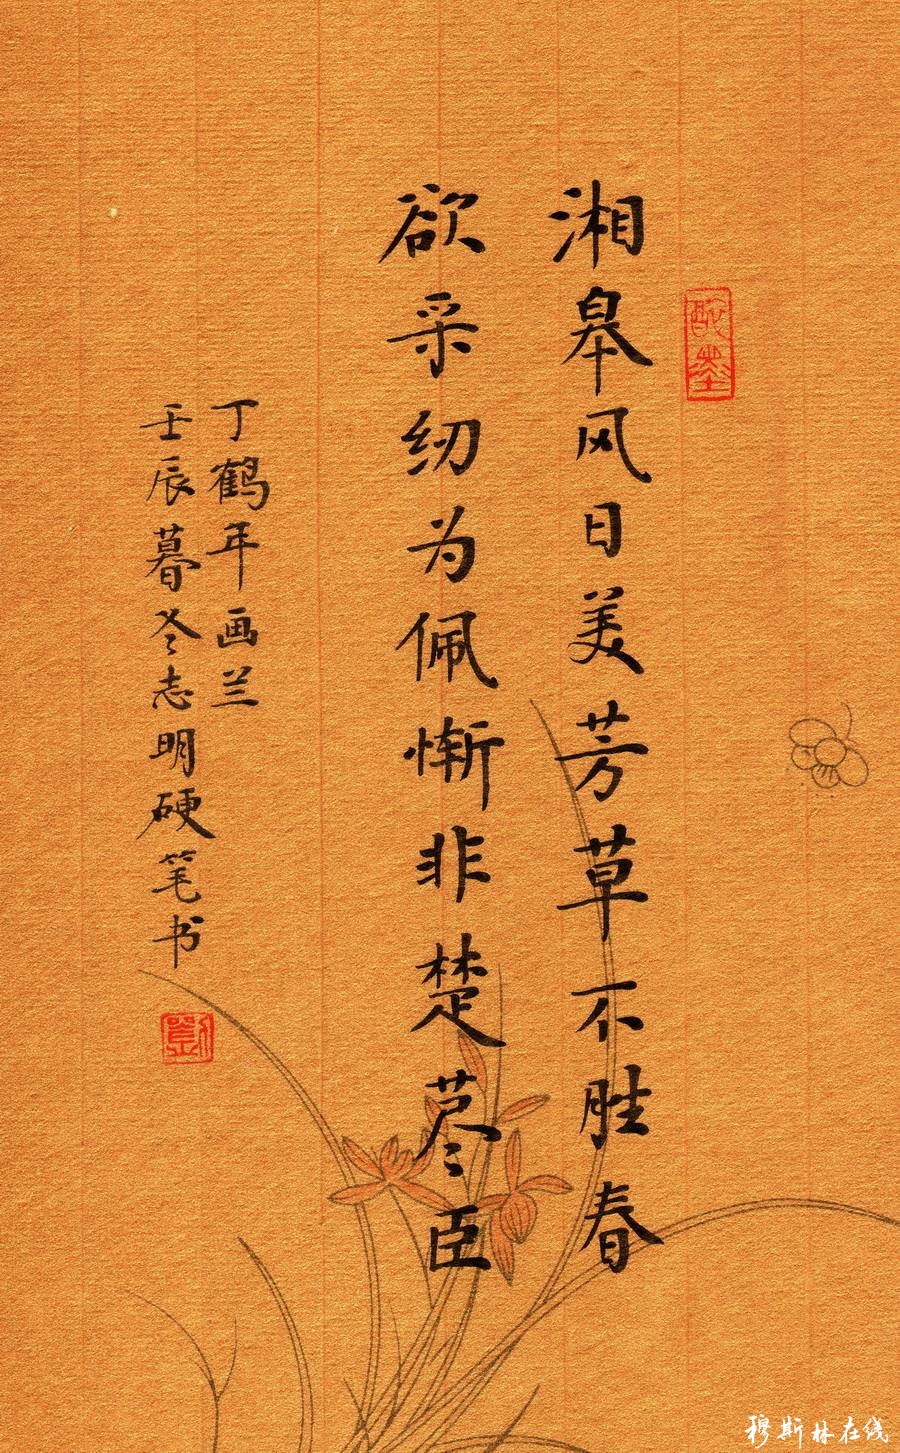 湘皋风日美芳草不胜春
欲采纫为佩惭非楚荩臣
丁鹤年画兰
壬辰暮冬志明硬笔书
穆斯林在线